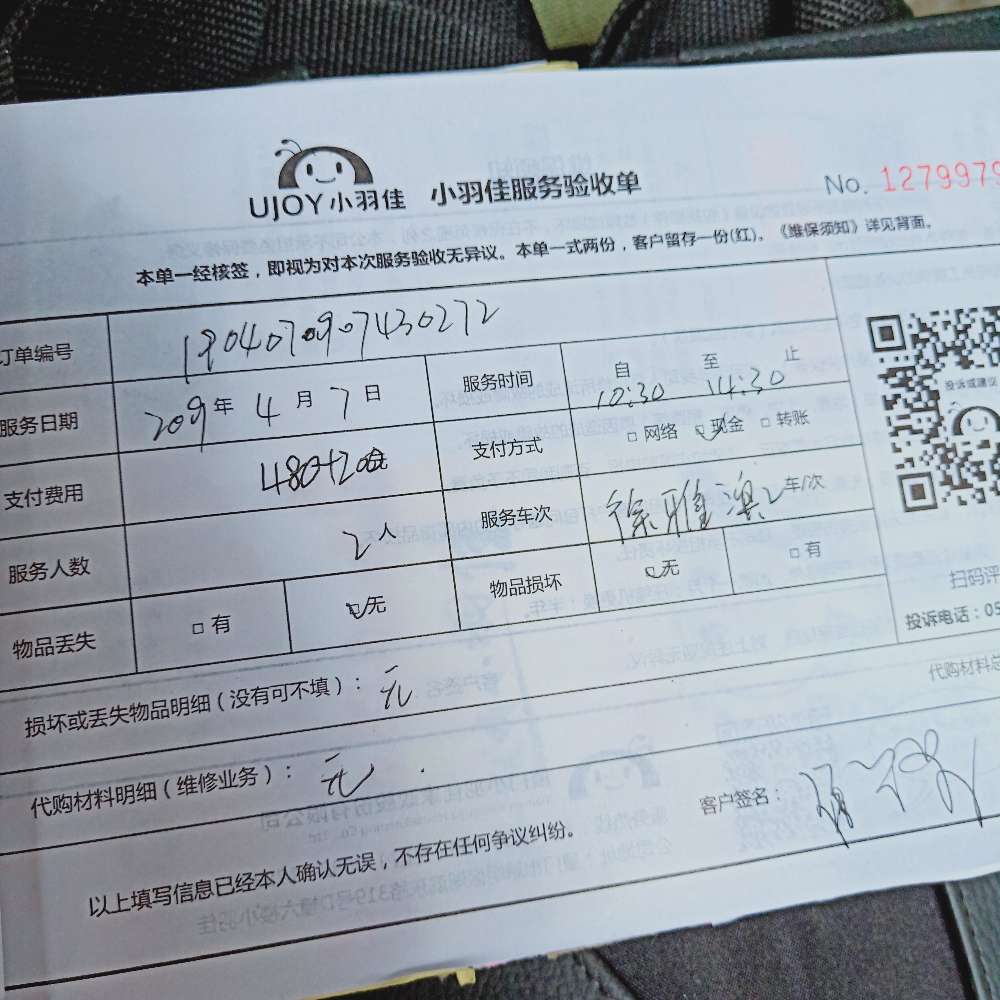 UJOY小羽佳 小羽佳服务验收单 No. 1279979
本单一经核签，即视为对本次服务验收无异议。本单一式两份，客户留存一份(红)。《维保须知》详见背面。
订单编号 1904070907430272
服务日期 209年 4月 7日 服务时间 自 10:30 至 14:30 止
支付费用 480+200 支付方式 □网络 ☑现金 □转账
服务人数 2人 服务车次 徐雅 2车/次
物品丢失 □有 ☑无 物品损坏 ☑无 □有
损坏或丢失物品明细（没有可不填）： 无
代购材料明细（维修业务）： 无
代购材料总
以上填写信息已经本人确认无误，不存在任何争议纠纷。
客户签名：
投诉或建议
扫码评
投诉电话：05